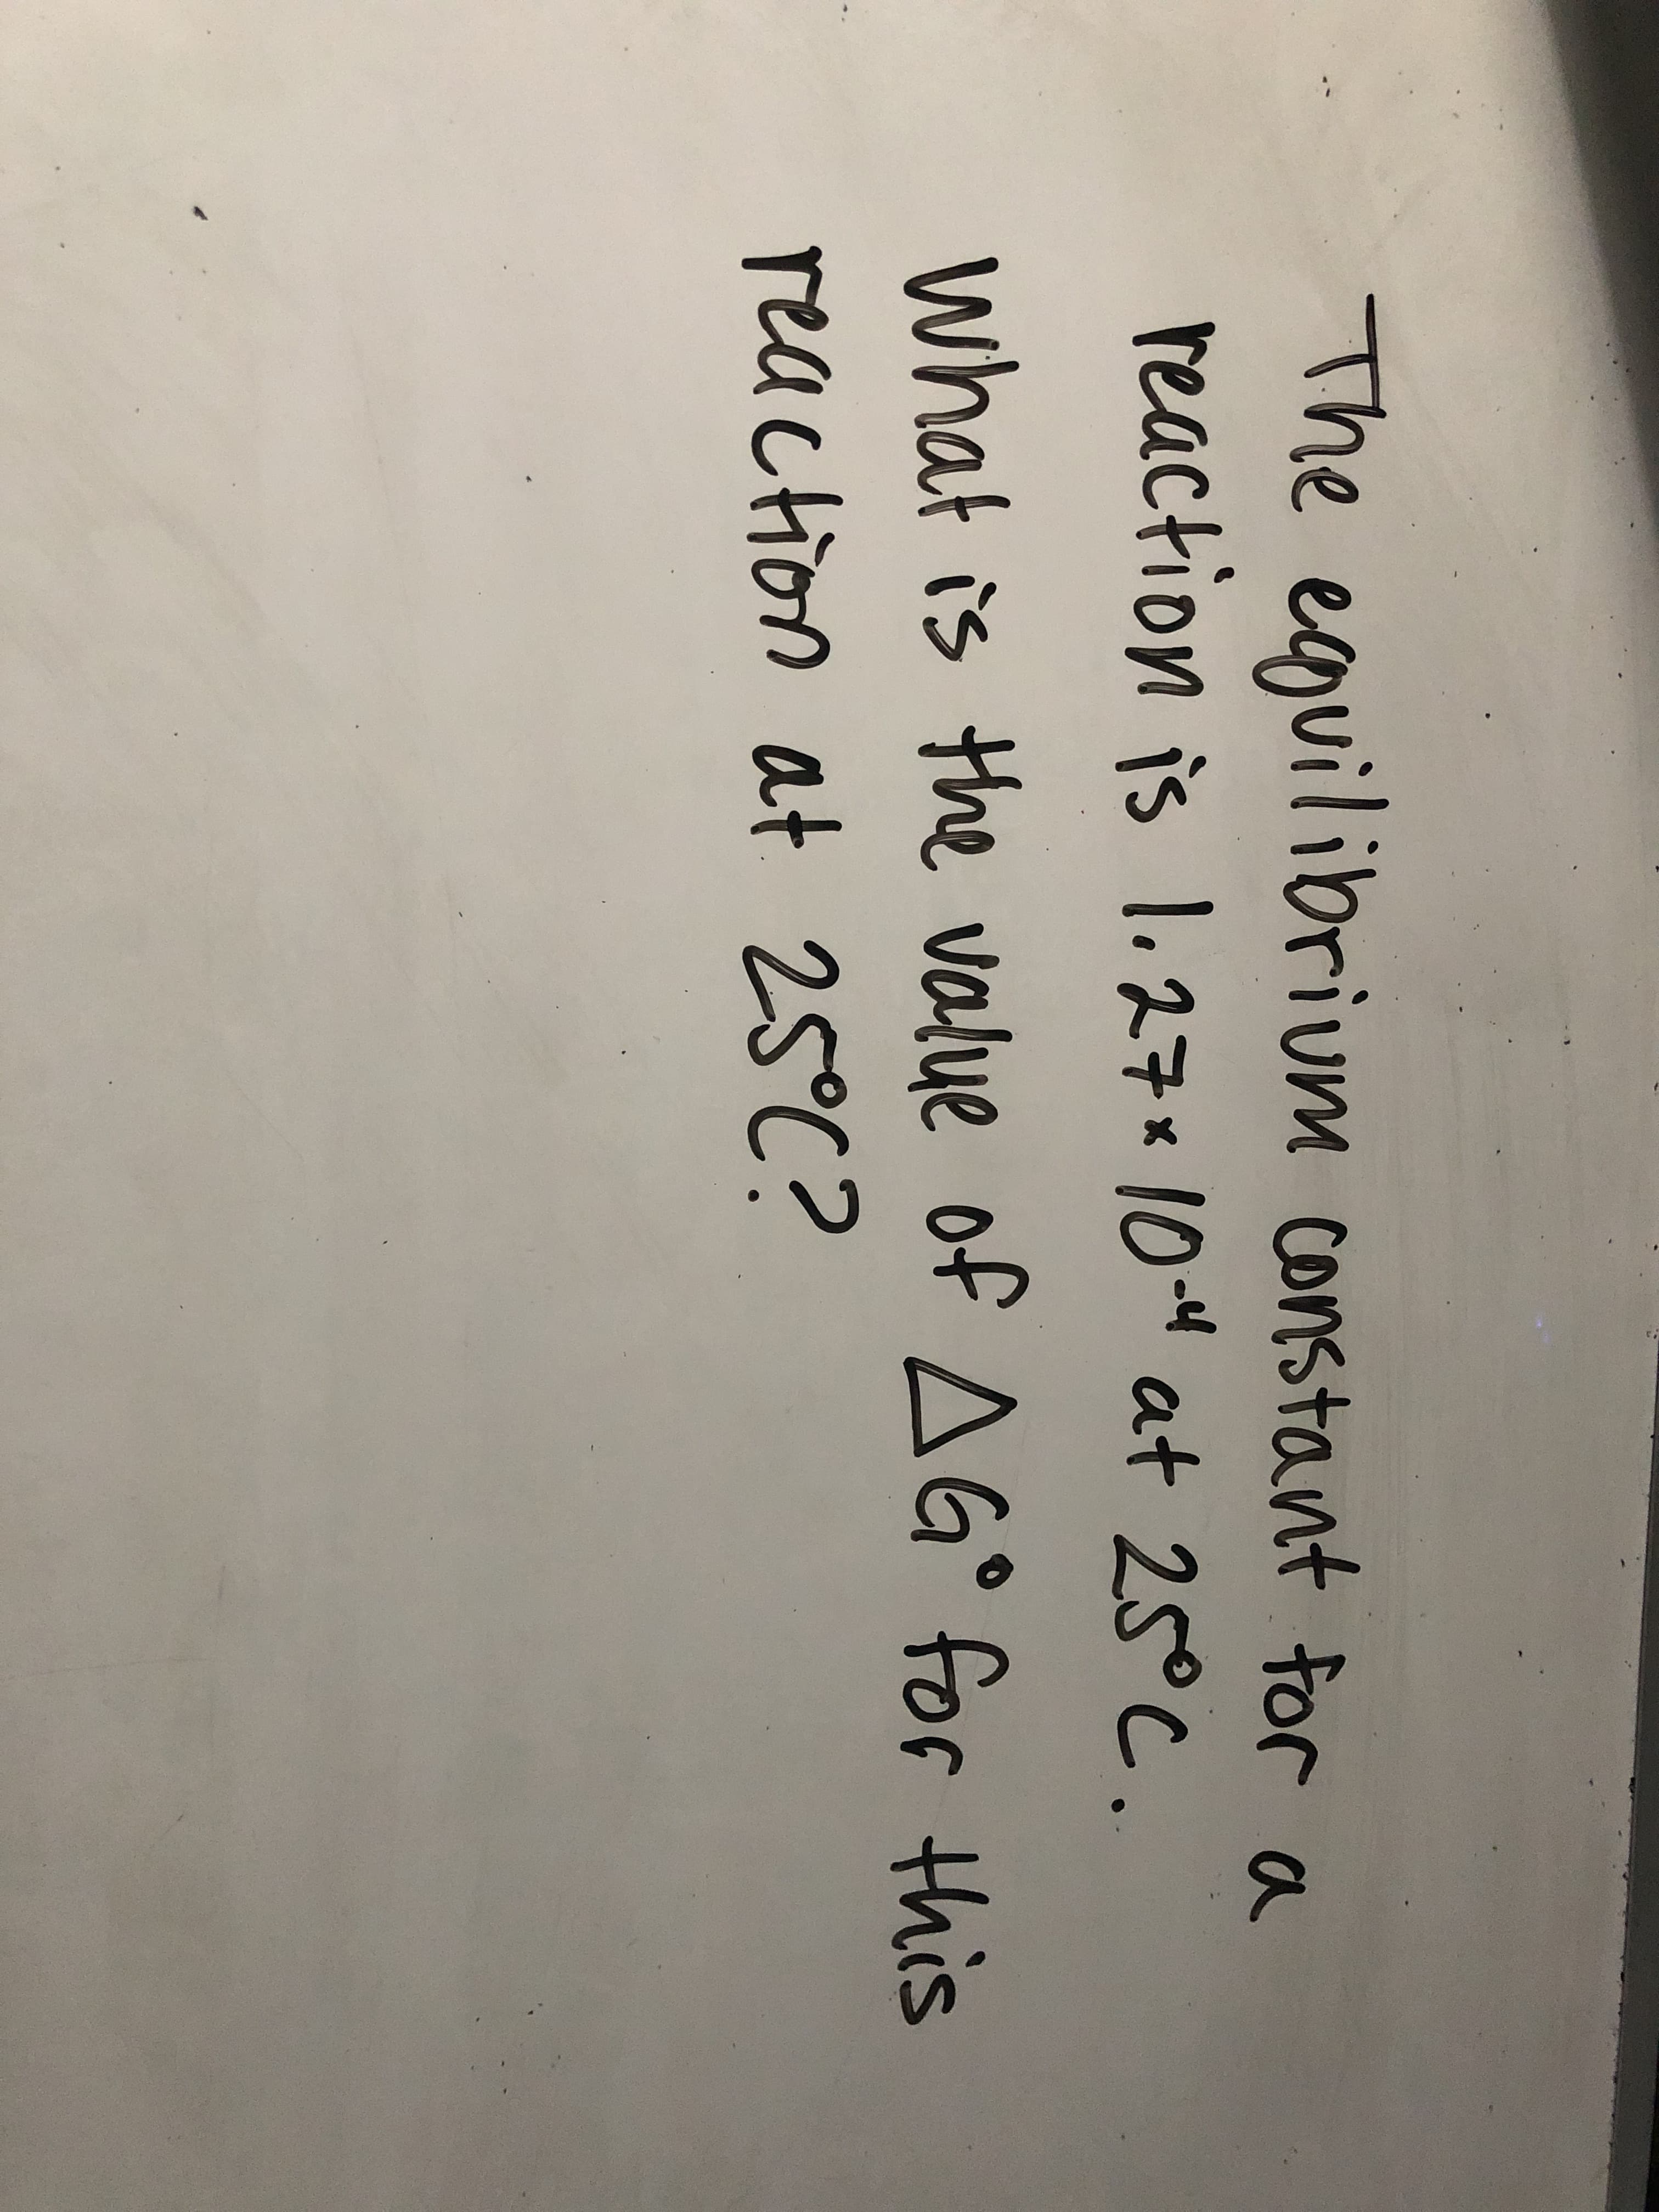 The equilibrium constant for a
reaction is 1.27 × 10⁻⁴ at 25°C.
What is the value of ΔG° for this
reaction at 25°C?